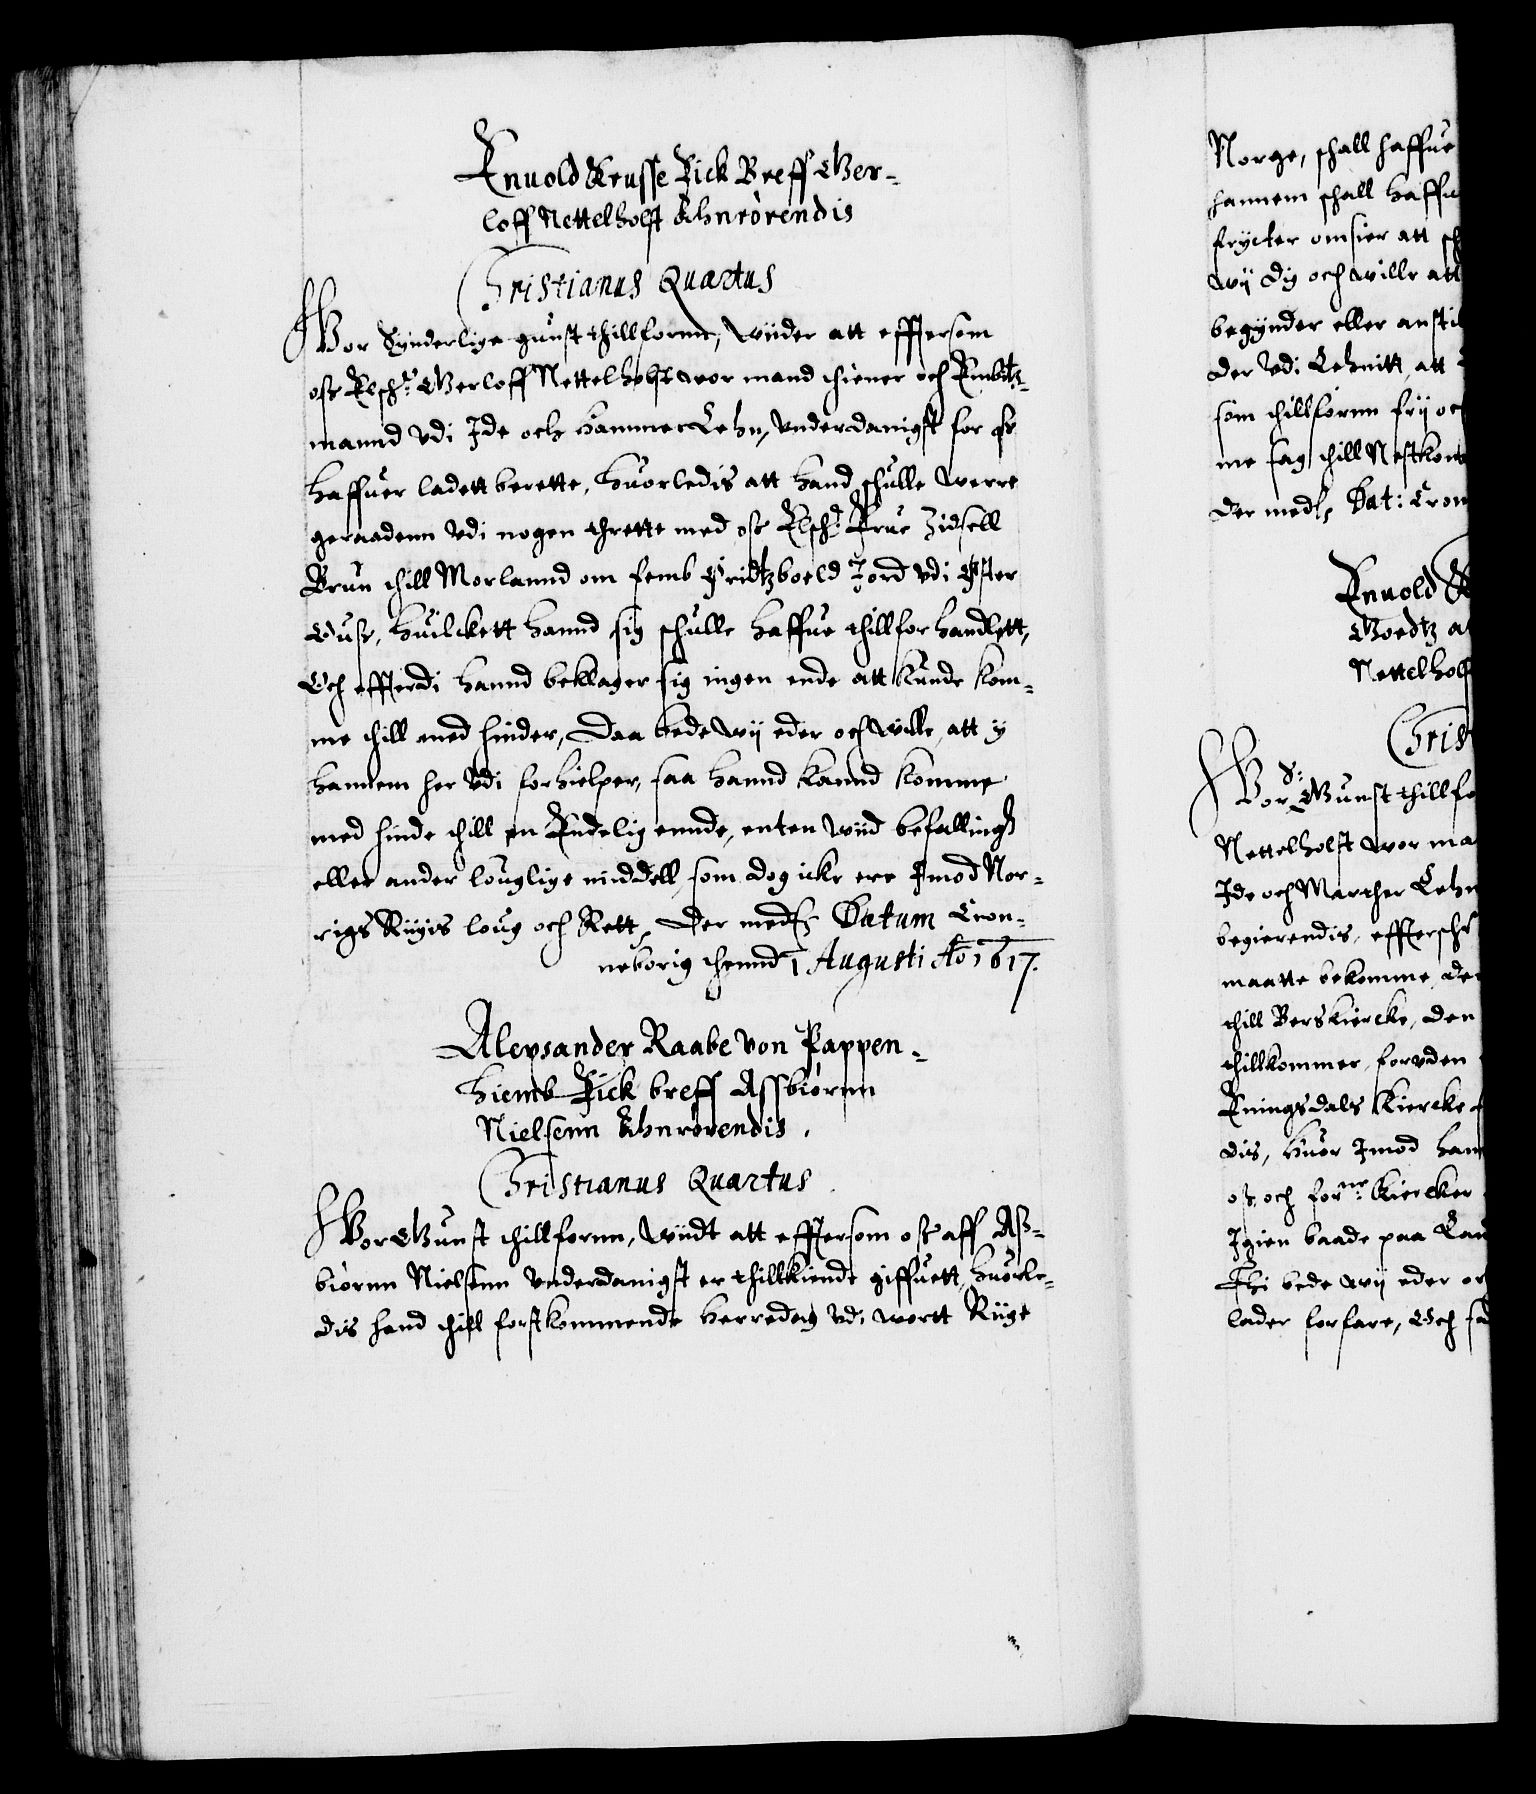 Enuold Krusse Fick Breff Ger-
loff Nettelholst Ahnrörendis
Christianus Quartus
Vor Synderlige gunst thillfornn, Wiider att effttersom
oss Elsch: Gerloff Nettelholst vor mand thiener och Embitz-
mannd vdi Ide och Hammer Lehn, vnderdanigst for oss
haffuer ladett berette, huorledis att hand schulle verre
geraadenn vdi nogen thrette med oss Elsch: Frue Zidsell
Brun thill Morlannd om femb Pridtzboeld Jord vdi Øster
huilckett hannd sig schulle haffue thillforhandlett,
Och effterdi hannd beklager sig ingen ende att kunde kom-
me thill med hinder, Daa bede wij eder och wille, att y
hannem her vdi forhielper, saa hannd kannd komme
med hinde thill en Endelig ennde, enten wiid befalling
eller ander louglige middell, som dog icke ere Imod Nor-
rigs Riigis loug och Rett, Der medh Datum Cron-
neborig thennd 1 Augusti Ao 1617.
Alexsander Raabe von Pappen-
hiemb Fick breff Assbiørnn
Nielsenn Ahnrörendis.
Christianus Quartus
Vor Gunst thillfornn, Wiidt att effttersom oss aff Ass-
biørnn Nielsenn vnderdanigst er thillkiende giffuett, huorle-
dis hand thill forstkommende herredag vdi vortt Riige
Norge, schall haffue
hannem schall haffu
frycter omsier att sch
wij dig och wille att
begynder eller ansti
der vdi Lehnitt, att
som thillfornn frij oc
me sag thill Nestkom
der medh Dat: Cron
Enuold K
Goedtz a
Nettelhols
Christ
Vor S: Gunst thillfo
Nettelholst vor ma
Ide och Marcher Lehn
begierendis, efftersch
maatte bekomme, de
thill Bers kiercke, den
thillkommer, foruden
Enings dals Kiercke
dis, huor Imod han
oss, och forne Kiercker
Igien baade paa Lan
Thi bede wij eder oc
lader forfare, Och sa